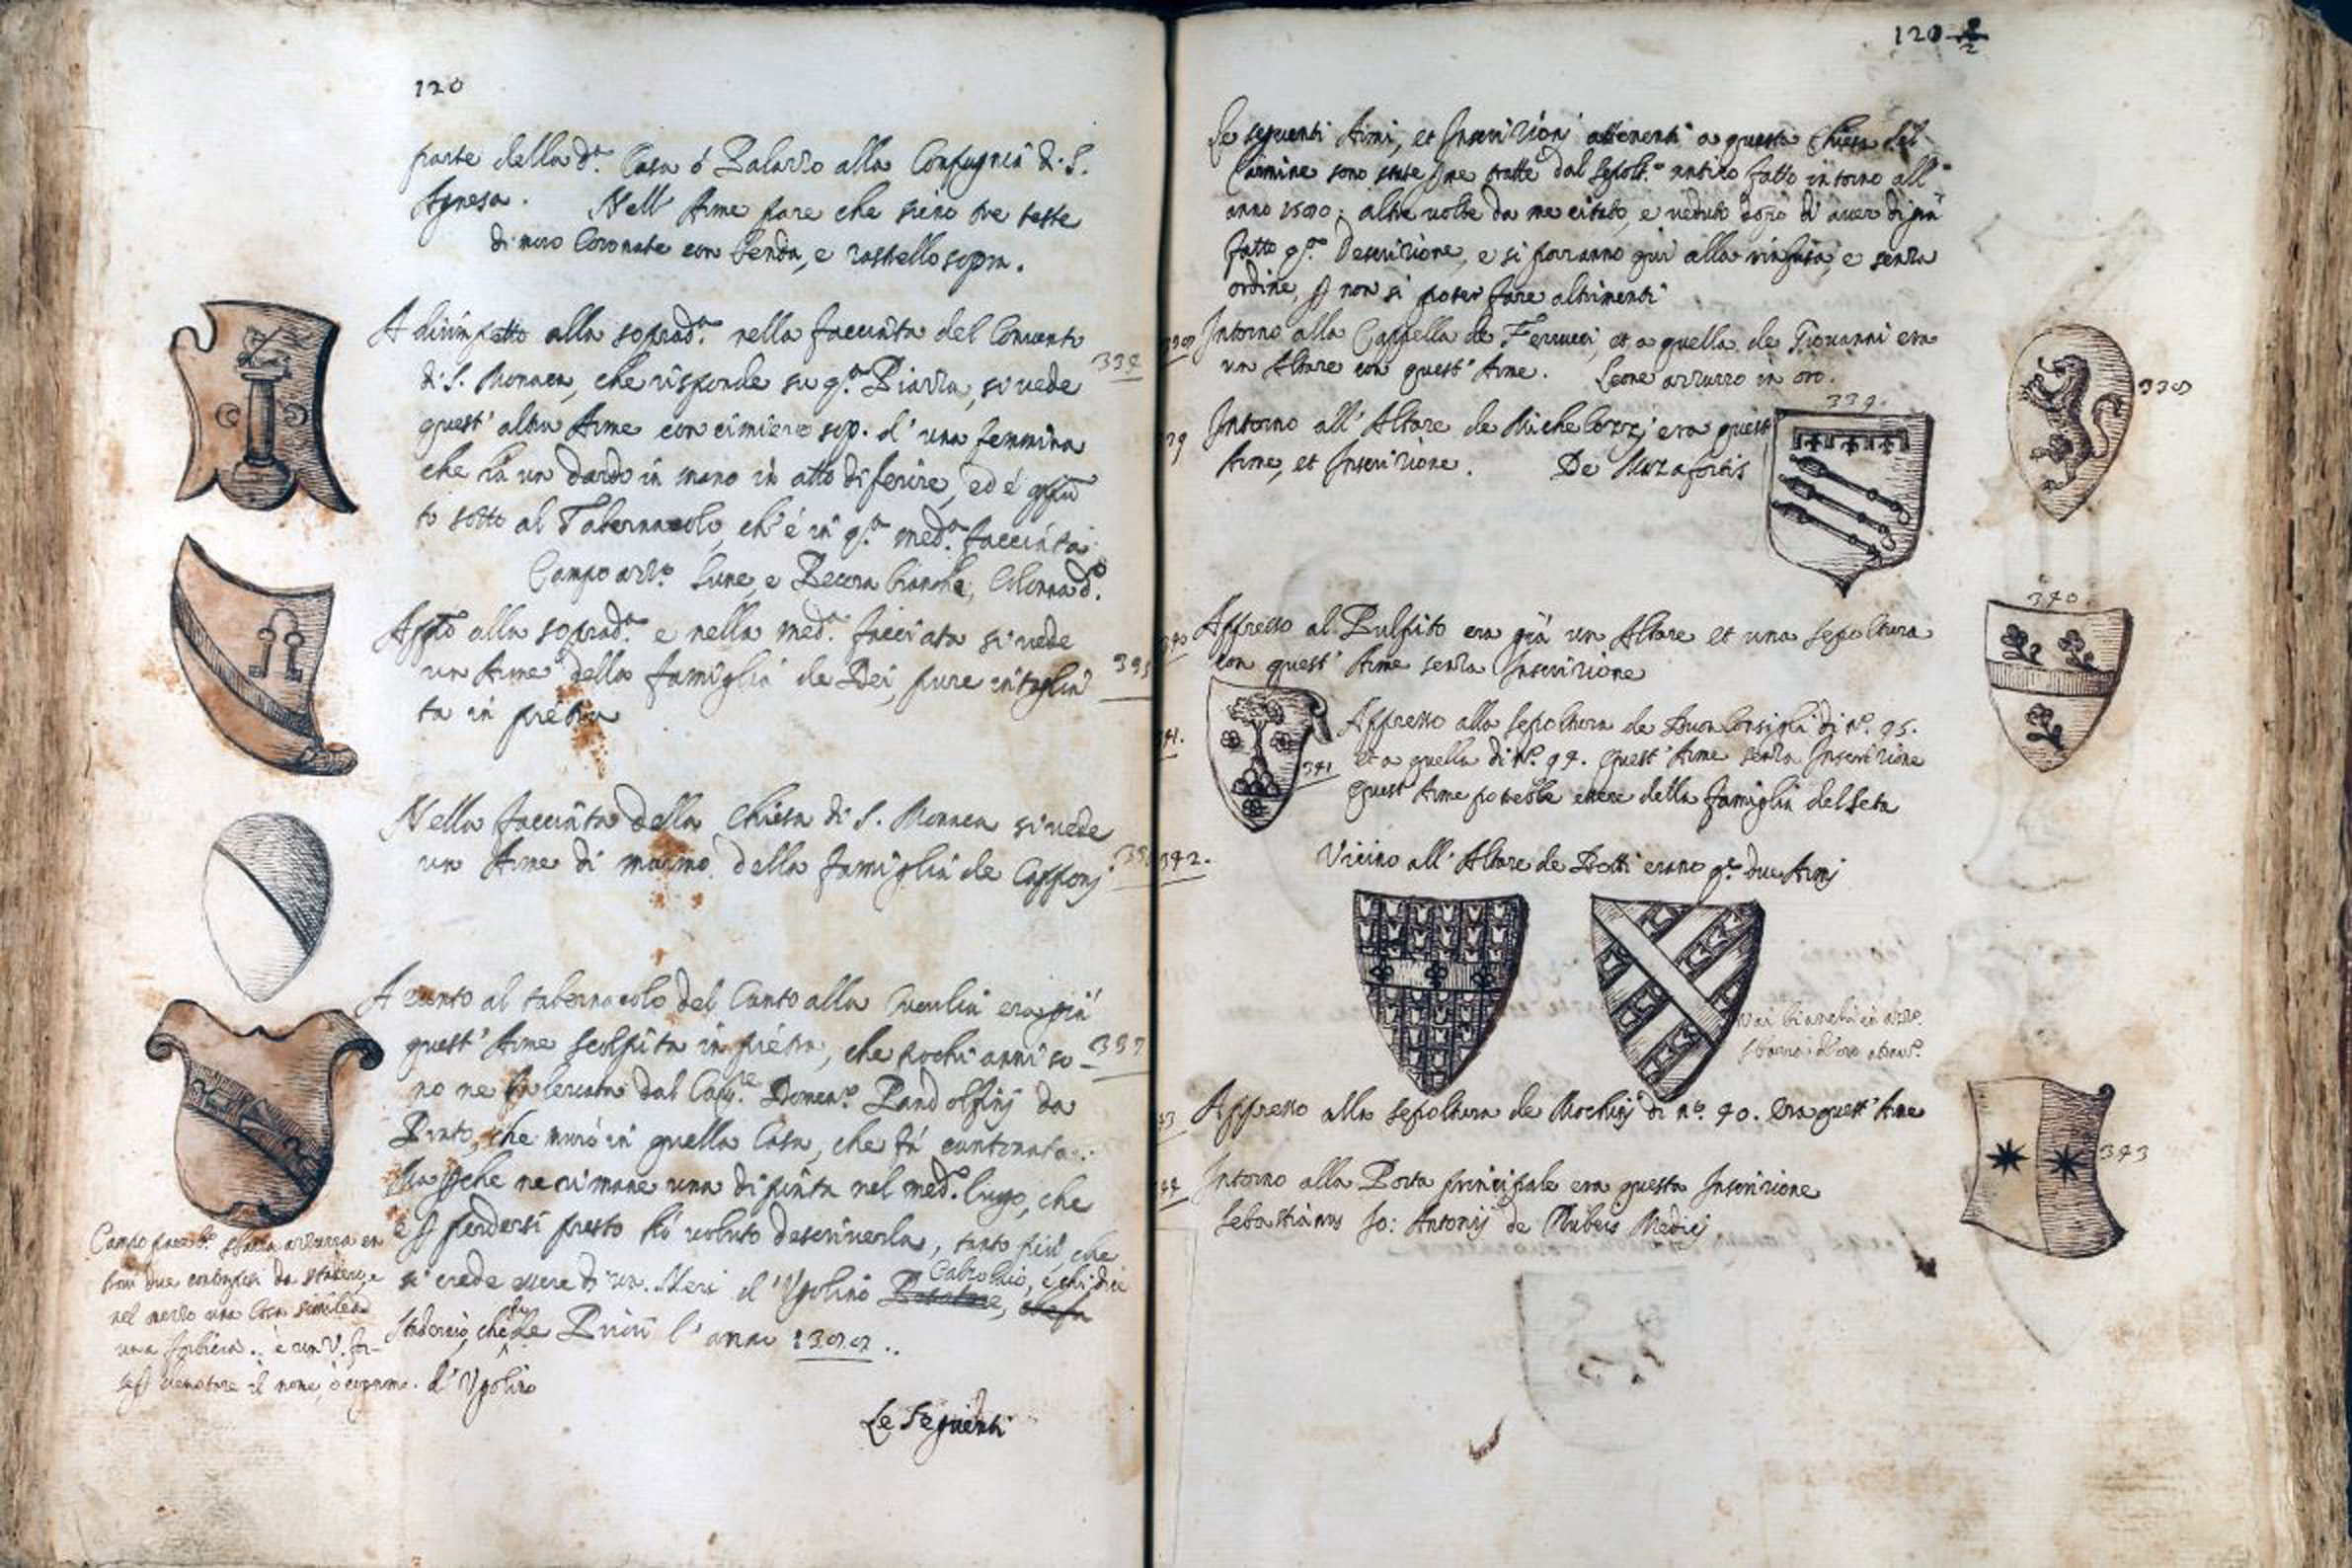 120
parte della d.ª Casa ó Palazzo alla Compagnia di S.
Agnesa. Nell' Arme pare che sieno tre teste
di moro Coronate con benda, e rastello sopra.
A dirimpetto alla soprad.ª nella facciata del Convento
di S. Monaca, che risponde su q.ª Piazza, si vede
334
quest' altra Arme con cimiero sop. d' una femmina
che hà un dardo in mano in atto di ferire, ed é
to sotto al Tabernacolo, ch' é in q.ª med.ª facciata
Campo azz.º Lune, e Pecora bianche, Colonna d.º
App.º alla soprad.ª e nella med.ª facciata si vede
un Arme della famiglia de Dei, pure intaglia
335
ta in pietra
Nella facciata della Chiesa di S. Monaca si vede
un Arme di marmo della famiglia de Capponj
A canto al tabernacolo del Canto alla Cuculia era già
quest' Arme scolpita in pietra, che pochi anni so-
337
no ne fu levata dal Cap.re Domen.º Pandolfinj da
Prato, che murò in quella Casa, che fà cantonata.
Ma perche ne rimane una dipinta nel med.º luogo, che
é p perdersi presto hó voluto descriverla, tanto più che
si crede essere di un Neri d' Ugolino
che de Priori l' anno
Campo azzurra
nel mezzo una Cosa simile ad
una forbicia. è un V. for-
denotare il nome, ò cognome d' Ugolino
Le Seguenti
120
Le seguenti Armi, et Inscrizioni attenenti a questa Chiesa del
Carmine sono state p me tratte dal Sepolt.º antico fatto intorno all'
anno altre volte da me citato, e veduto dopo d' aver di già
fatto q.ª Descrizione, e si porranno quì alla rinfusa, e senza
ordine, p non si poter fare altrimenti
Intorno alla Cappella de Ferrucci, et a quella de Giovanni era
un Altare con quest' Arme. Leone azzurro in oro.
339.
Intorno all' Altare de Michelozzj era quest'
Arme, et Inscrizione. De Mazafortis
340.
Appresso al Pulpito era già un Altare et una sepoltura
con quest' Arme senza Inscrizione
Appresso alla sepoltura de Buonconsigli di n.º 95.
341
et a quella di n.º 94. quest' Arme senza Inscrizione
Quest' Arme potrebbe essere della famiglia del Seta
342.
Vicino all' Altare de Botti erano q.e due Armj
Vai bianchi in azz.º
Appresso alla sepoltura de Mochij di n.º 40. era quest' Arme
343
Intorno alla Porta principale era questa Inscrizione
Sebastianus Jo: Antonij de Rubeis Medicj